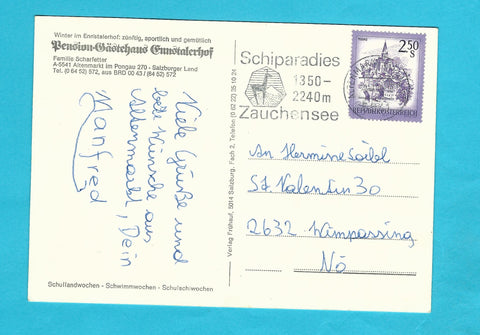 Winter im Ennstalerhof: zünftig, sportlich und gemütlich
Pension-Gästehaus Ennstalerhof
Familie Scharfetter
A-5541 Altenmarkt im Pongau 270 - Salzburger Land
Tel. (0 64 52) 572, aus BRD 00 43 / (64 52) 572
Viele Grüße und
beste Wünsche aus
Altenmarkt, Dein
Manfred
Schullandwochen - Schwimmwochen - Schulschiwochen
Verlag Frühauf, 5014 Salzburg, Fach 2, Telefon (0 62 22) 35 10 21
Schiparadies
1350-
2240m
Zauchensee
2.50 S
REPUBLIK ÖSTERREICH
An Hermine Loibl
St. Valentin 30
2632 Wimpassing
NÖ